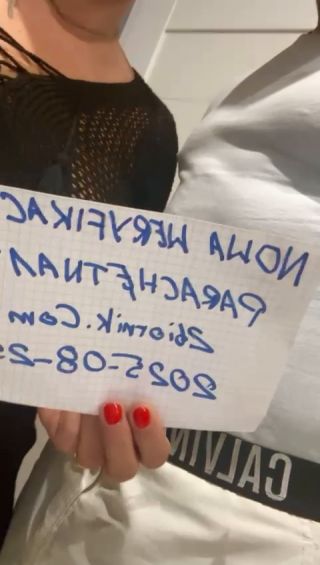 NOWA WERYFIKAC
PARACHĘTNA
Zbiornik.Com
2025-08-2
CALVIN